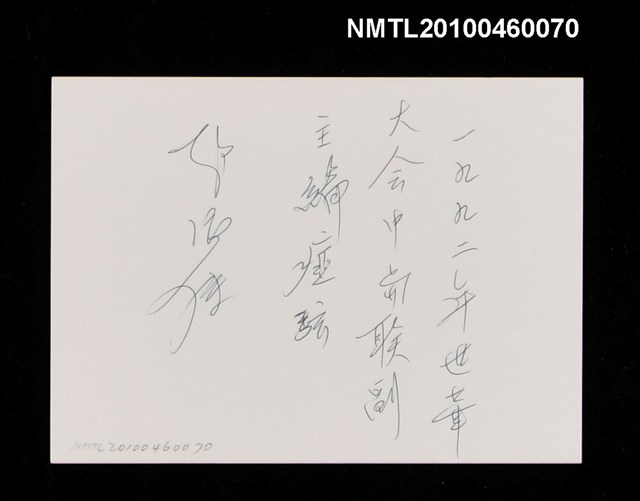 NMTL20100460070
一九九二年世華
大会中前联副
主編瘂弦
NMTL20100460070